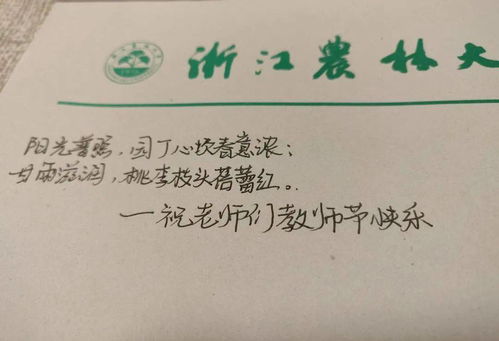 浙江農林大
阳光普照，园丁心坎春意浓；
甘雨滋润，桃李枝头蓓蕾红。
一祝老师们教师节快乐